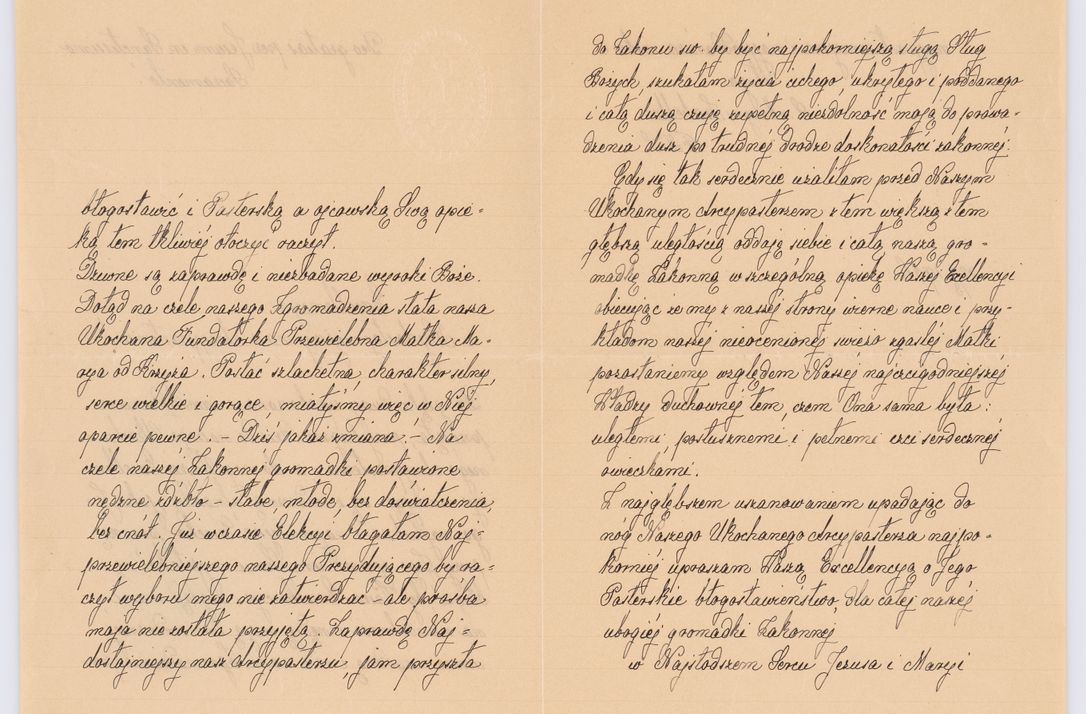 błogosławić i Pasterską a ojcowską Swą opie-
ką tem tkliwiéj otoczyć raczył.
Dziwne są zaprawdę i niezbadane wyroki Boże.
Dotąd na czele naszego Zgromadzenia stała nasza
Ukochana Fundatorka Przewielebna Matka Ma-
rya od Krzyża. Postać szlachetna, charakter silny,
serce wielkie i gorące, miałyśmy więc w Niéj
oparcie pewne. - Dziś jakaż zmiana! - Na
czele naszéj Zakonnéj gromadki postawione
nędzne źdźbło - słabe, młode, bez doświadczenia,
bez cnót. Już w czasie Elekcyi błagałam Naj-
przewielebniejszego naszego Prezydującego by ra-
czył wyboru mego nie zatwierdzać - ale prośba
moja nie została przyjętą. Zaprawdę Naj-
dostojniejszy nasz Arcypasterzu, jam przyszła
do Zakonu św. by być najpokorniejszą sługą Sług
Bożych, szukałam życia cichego, ukrytego i poddanego
i całą duszą czuję zupełną niezdolność moją do prowa-
dzenia dusz po trudnéj drodze doskonałości zakonnéj.
Gdy się tak serdecznie użaliłam przed Naszym
Ukochanym Arcypasterzem z tem większą z tem
głębszą uległością oddaję siebie i całą naszą gro-
madkę Zakonną w szczególną opiekę Waszéj Excellencyi
obiecując że my z naszéj strony wierne nauce i przy-
kładom naszéj nieocenionéj świeżo zgasłéj Matki
pozostaniemy względem Naszéj najczcigodniejszéj
Władzy duchownéj tem, czem Ona sama była:
uległemi, posłusznemi i pełnemi czci serdecznéj
owieczkami.
Z najgłębszem uszanowaniem upadając do
nóg Naszego Ukochanego Arcypasterza najpo-
korniéj upraszam Waszą Excellencyą o Jego
Pasterskie błogosławieństwo, dla całéj naszéj
ubogiéj gromadki Zakonnéj
w Najsłodszem Sercu Jezusa i Maryi